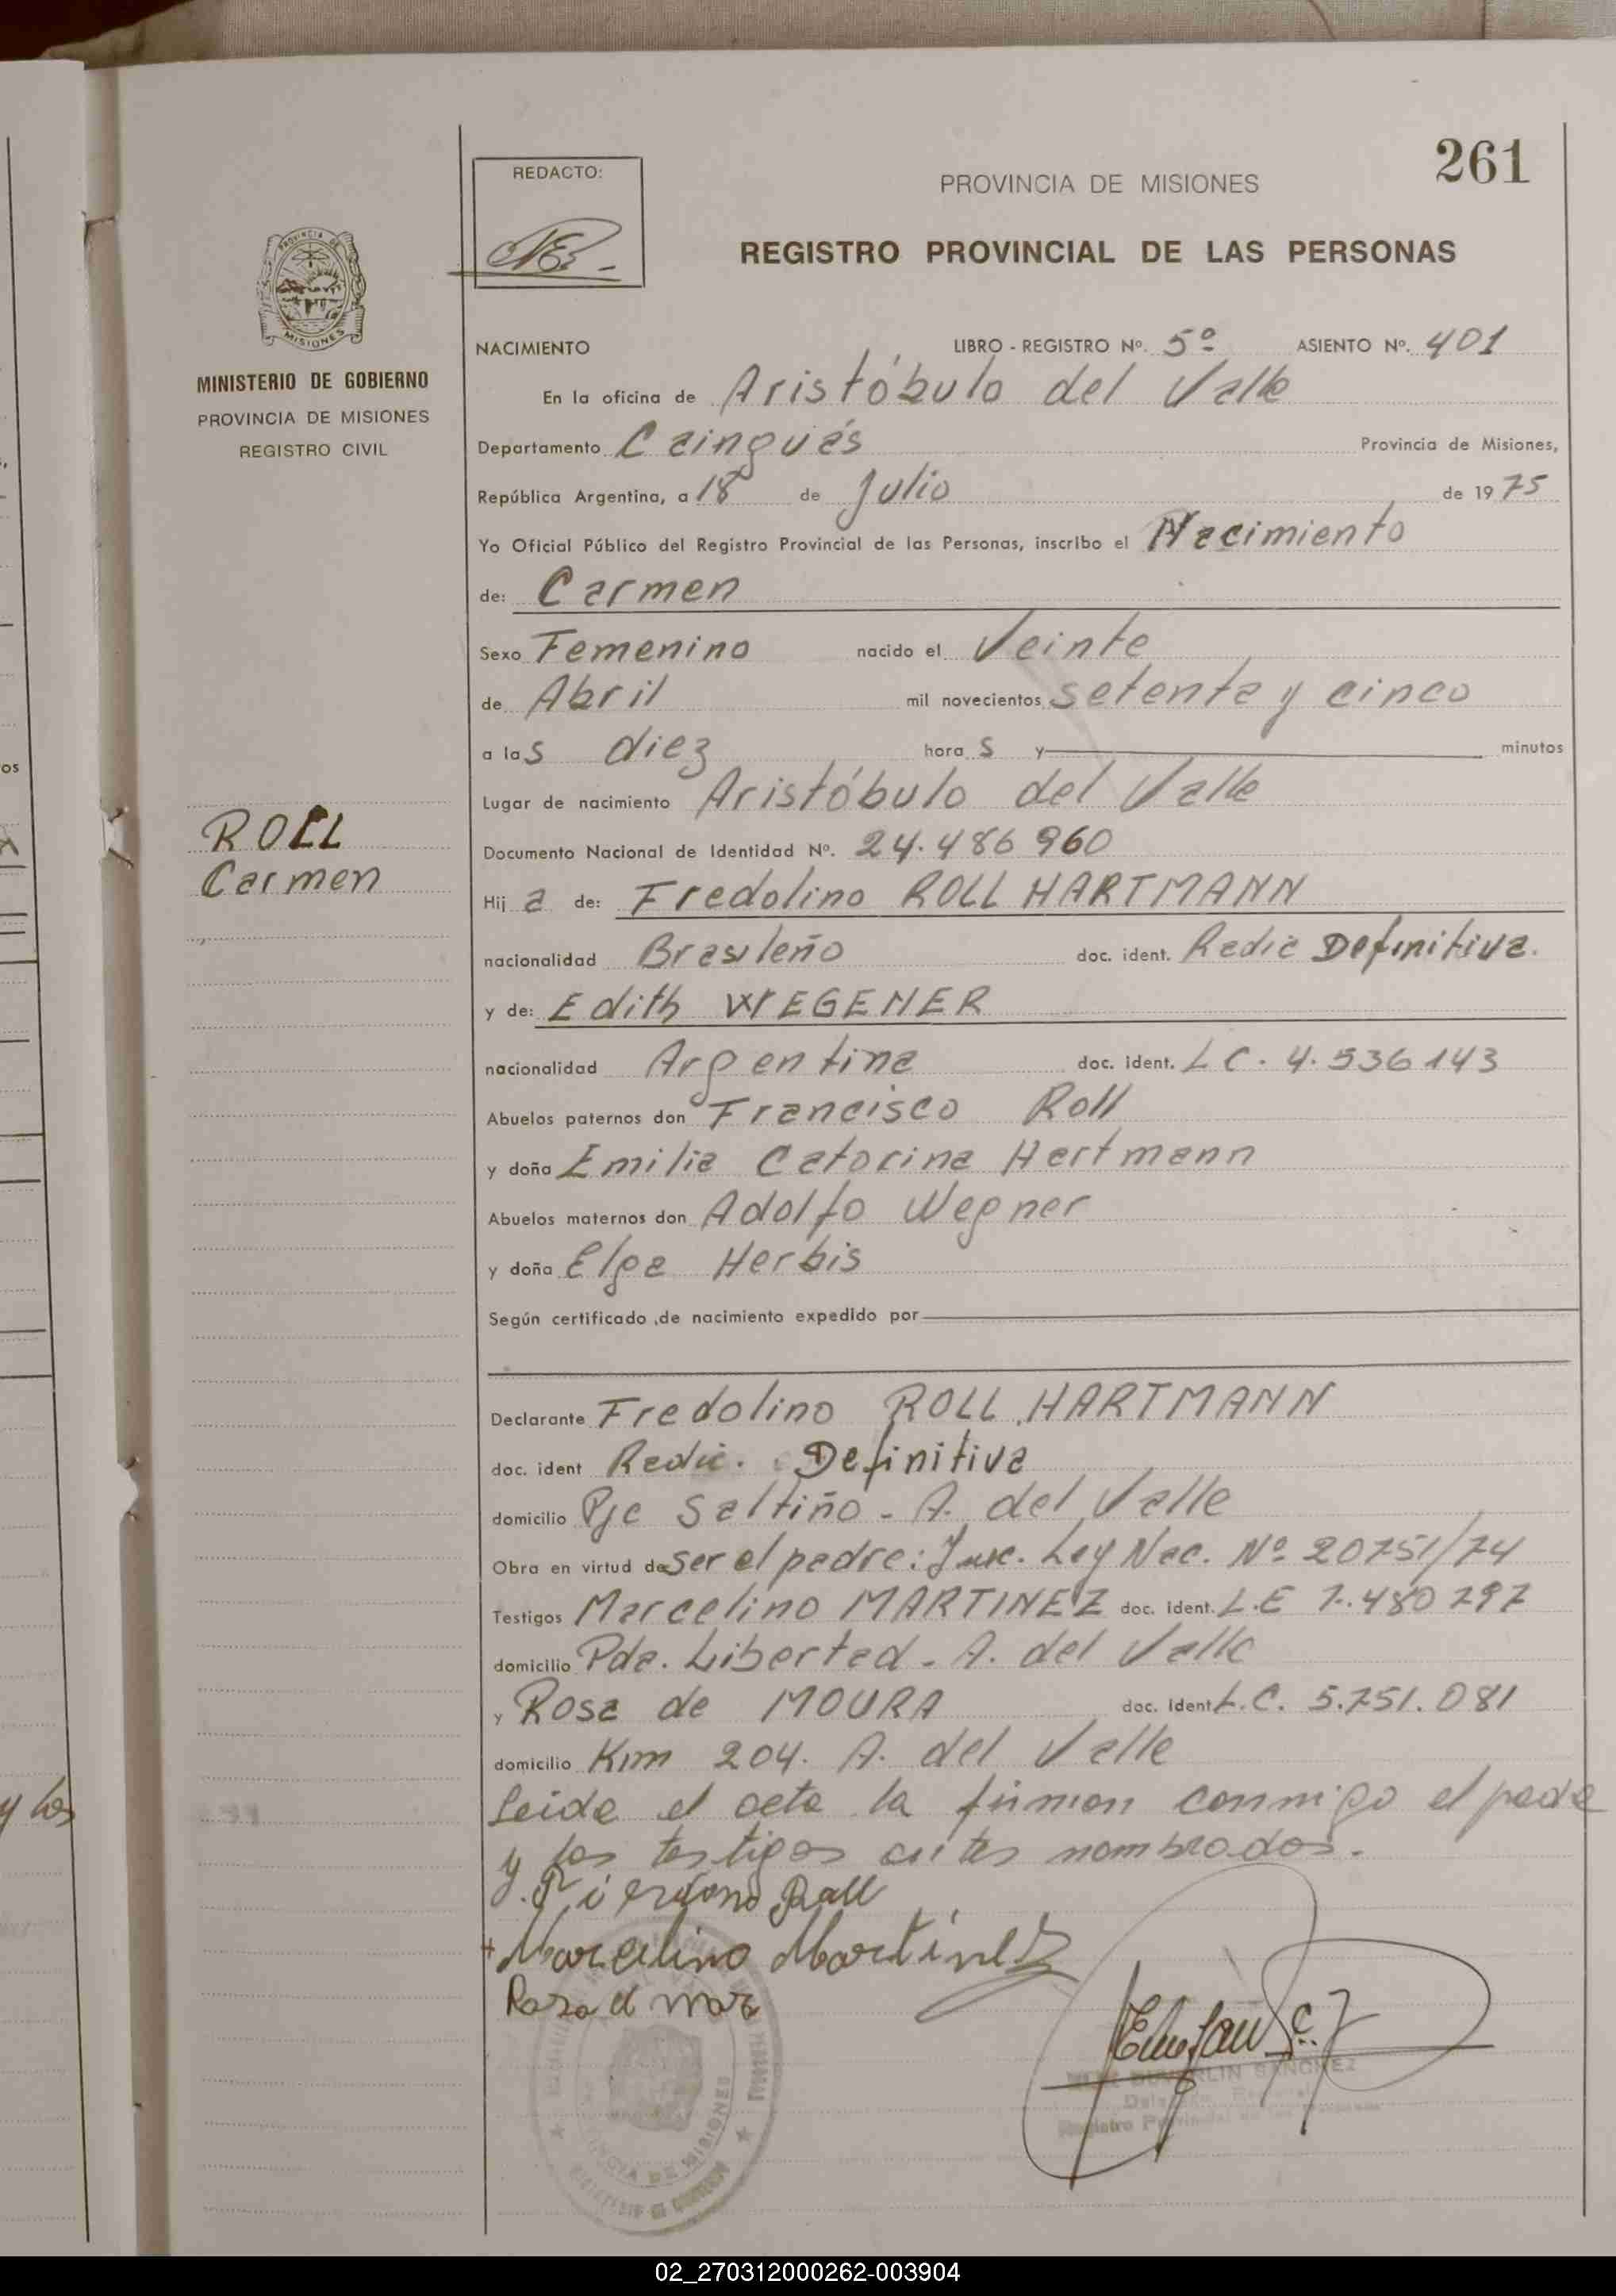 261
REDACTO:
PROVINCIA DE MISIONES
REGISTRO PROVINCIAL DE LAS PERSONAS
PROVINCIA DE
MISIONES
MINISTERIO DE GOBIERNO
PROVINCIA DE MISIONES
REGISTRO CIVIL
NACIMIENTO LIBRO - REGISTRO Nº. 5º ASIENTO Nº. 401
En la oficina de Aristóbulo del Valle
Departamento Cainguás Provincia de Misiones,
República Argentina, a 18 de Julio de 1975
Yo Oficial Público del Registro Provincial de las Personas, inscribo el Nacimiento
de: Carmen
Sexo Femenino nacido el Veinte
de Abril mil novecientos setenta y cinco
a las diez horas y minutos
Lugar de nacimiento Aristóbulo del Valle
ROLL
Carmen
Documento Nacional de Identidad Nº. 24.486960
Hija de: Fredolino ROLL HARTMANN
nacionalidad Brasileño doc. ident. Radic Definitiva.
y de: Edith WEGENER
nacionalidad Argentina doc. ident. LC. 4.536143
Abuelos paternos don Francisco Roll
y doña Emilia Catorina Hartmann
Abuelos maternos don Adolfo Wegner
y doña Elga Herbis
Según certificado de nacimiento expedido por
Declarante Fredolino ROLL HARTMANN
doc. ident Radic. Definitiva
domicilio Pje Saltiño - A. del Valle
Obra en virtud de ser el padre: Ley Nac. Nº 20751/74
Testigos Marcelino MARTINEZ doc. ident. L.E 7.480797
domicilio Pda. Libertad - A. del Valle
y Rosa de MOURA doc. ident L.C. 5.751.081
domicilio Km 204. A. del Valle
y los
Leida el acta la firman conmigo el padre
y los testigos antes nombrados.
Roll
+ Marcelino Martinez
Rosa d mora
SANCHEZ
Registro
DE MISIONES
02_270312000262-003904